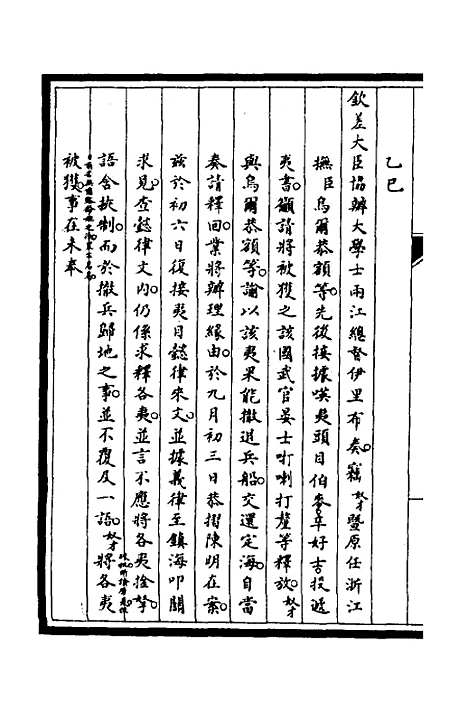 乙巳
欽差大臣協辦大學士兩江總督伊里布奏。竊奴才暨原任浙江
撫臣烏爾恭額等先後接據嘆夷頭目伯麥辛好古投遞
夷書。籲請將被獲之該國武官晏士叮喇打釐等釋放。奴才
與烏爾恭額等。諭以該夷果能撤退兵船。交還定海。自當
奏請釋回。業將辦理緣由。於九月初三日恭摺陳明在案。
茲於初六日復接夷目懿律來文。並據義律至鎮海叩關
求見。查懿律文內。仍係求釋各夷。並言不應將各夷捨拏。
語含挾制。而於撤兵歸地之事。並不覆及一語。奴才將各夷
被獲。事在未奉